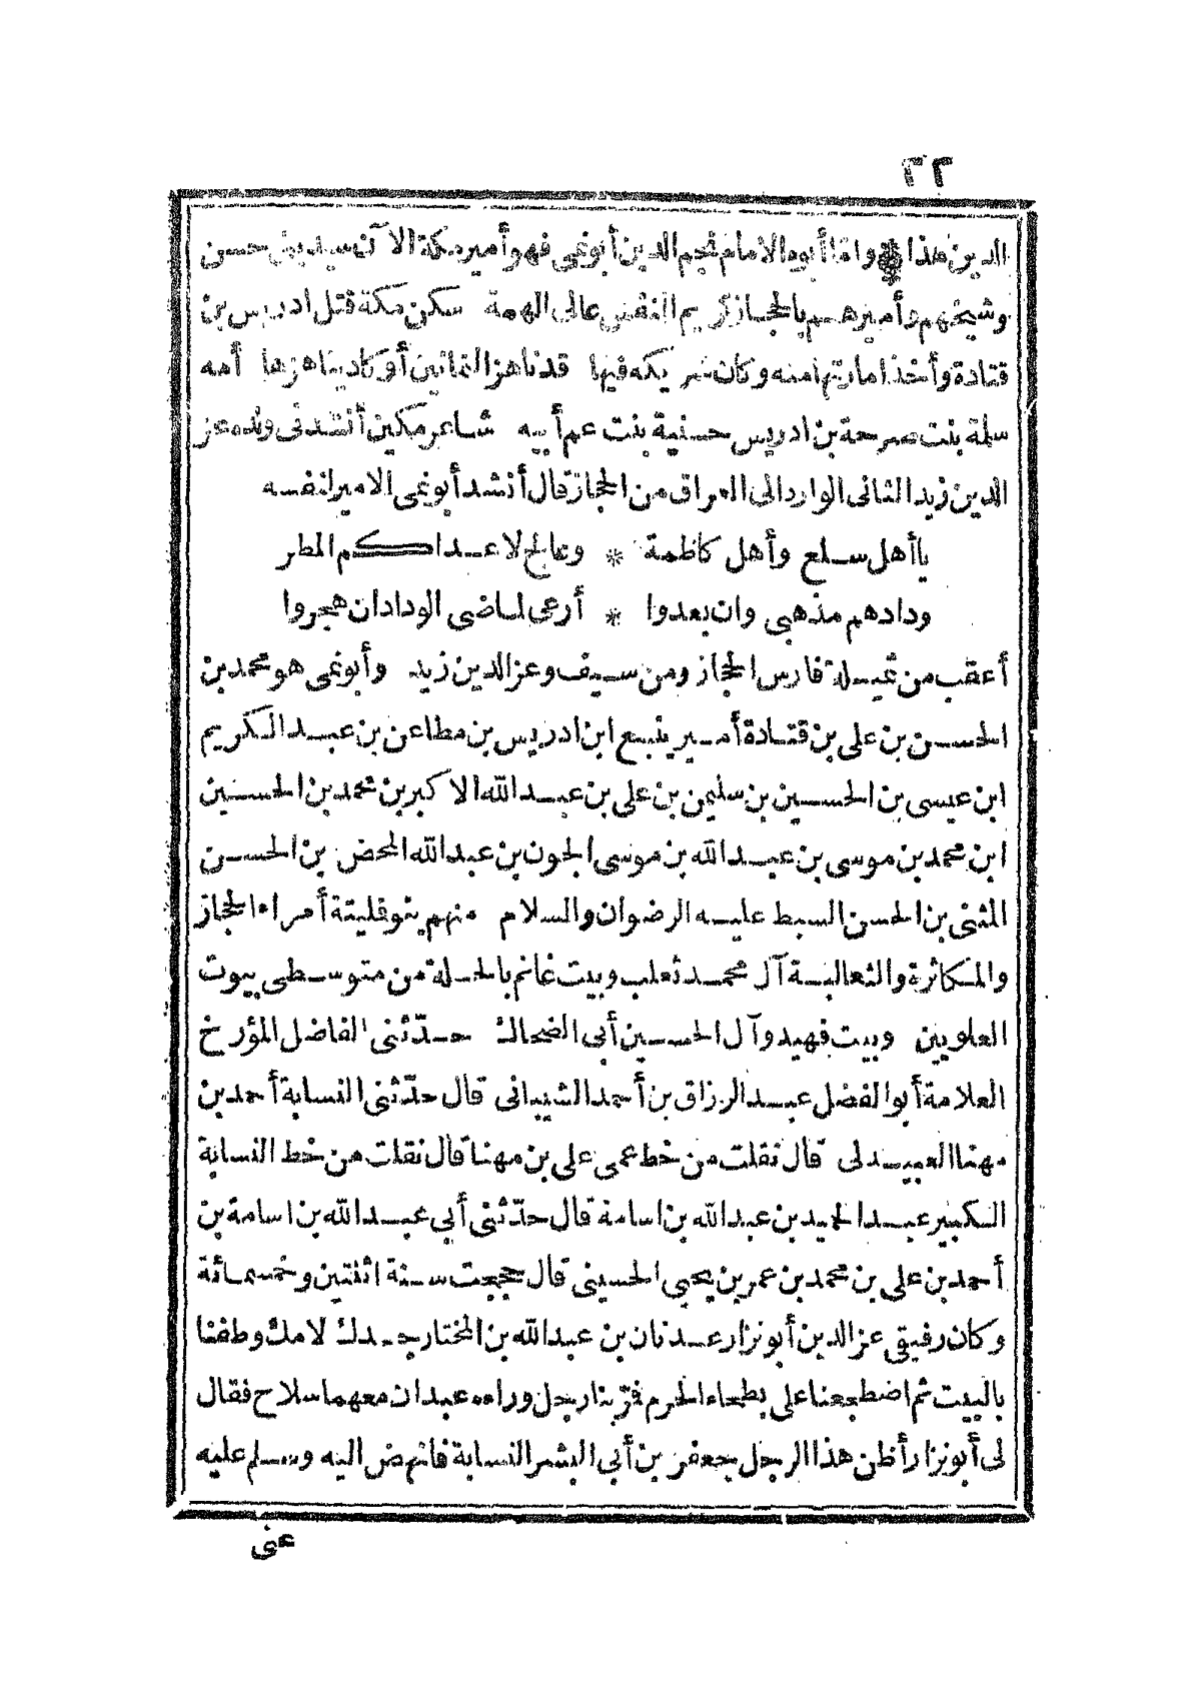 ٢٢
الدين هذا * واما أبوه الامام نجم الدين أبو نمى فهو أمير مكة الآن سيد بنى حسن
وشيخهم وأميرهم بالحجاز كريم النفس عالى الهمة سكن مكة قتل ادريس بن
قتادة وأخذ امارتها منه وكان شريكه فيها قد ناهز الثمانين أو كاد يناهزها أمه
سلمة بنت صرحة بن ادريس حسنية بنت عم أبيه شاعر مكين أنشدنى ولده عز
الدين زيد الثانى الوارد الى العراق من الحجاز قال أنشد أبو نمى الامير لنفسه
يا أهل سلع وأهل كاظمة * وعالج لاعداكم المطر
ودادهم مذهبى وان بعدوا * أرعى لماضى الوداد ان هجروا
أعقب من ثميلة فارس الحجاز ومن سيف وعز الدين زيد وأبو نمى هو محمد بن
الحسن بن على بن قتادة أمير ينبع ابن ادريس بن مطاعن بن عبد الكريم
ابن عيسى بن الحسين بن سليمن بن على بن عبد الله الاكبر بن محمد بن الحسنين
ابن محمد بن موسى بن عبد الله بن موسى الجون بن عبد الله المحض بن الحسن
المثنى بن الحسن السبط عليه الرضوان والسلام منهم بنو قليتة أمراء الحجاز
والمكاثرة والثعالبة آل محمد ثعلب وبيت غانم بالحلة من متوسطى بيوت
العلويين وبيت فهيد وآل الحسين أبى الضحاك حدّثنى الفاضل المؤرخ
العلامة أبو الفضل عبد الرزاق بن أحمد الشيبانى قال حدّثنى النسابة أحمد بن
مهنا العبيدلى قال نقلت من خط عمى على بن مهنا قال نقلت من خط النسابة
الكبير عبد الحميد بن عبد الله بن اسامة قال حدّثنى أبى عبد الله بن اسامة بن
أحمد بن على بن محمد بن عمر بن يحيى الحسينى قال حججت سنة اثنتين وخمسمائة
وكان رفيقى عز الدين أبو نزار عدنان بن عبد الله بن المختار جدك لامك وطفنا
بالبيت ثم اضطجعنا على بطحاء الحرم فمرّ بنا رجل وراءه عبدان معهما سلاح فقال
لى أبو نزار أظن هذا الرجل جعفر بن أبى البشر النسابة فانهض اليه وسلم عليه
عنى